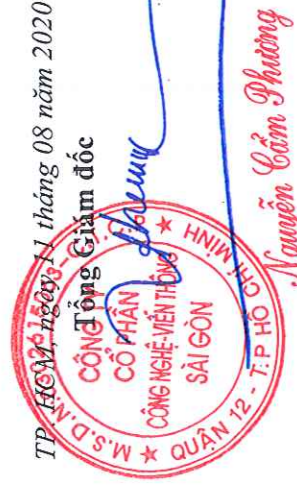 TP. HCM, ngày 11 tháng 08 năm 2020
Tổng Giám đốc
CÔNG TY
CỔ PHẦN
CÔNG NGHỆ-VIỄN THÔNG
SÀI GÒN
M.S.D.N:
QUẬN 12 - T.P HỒ CHÍ MINH
Nguyễn Cẩm Phương